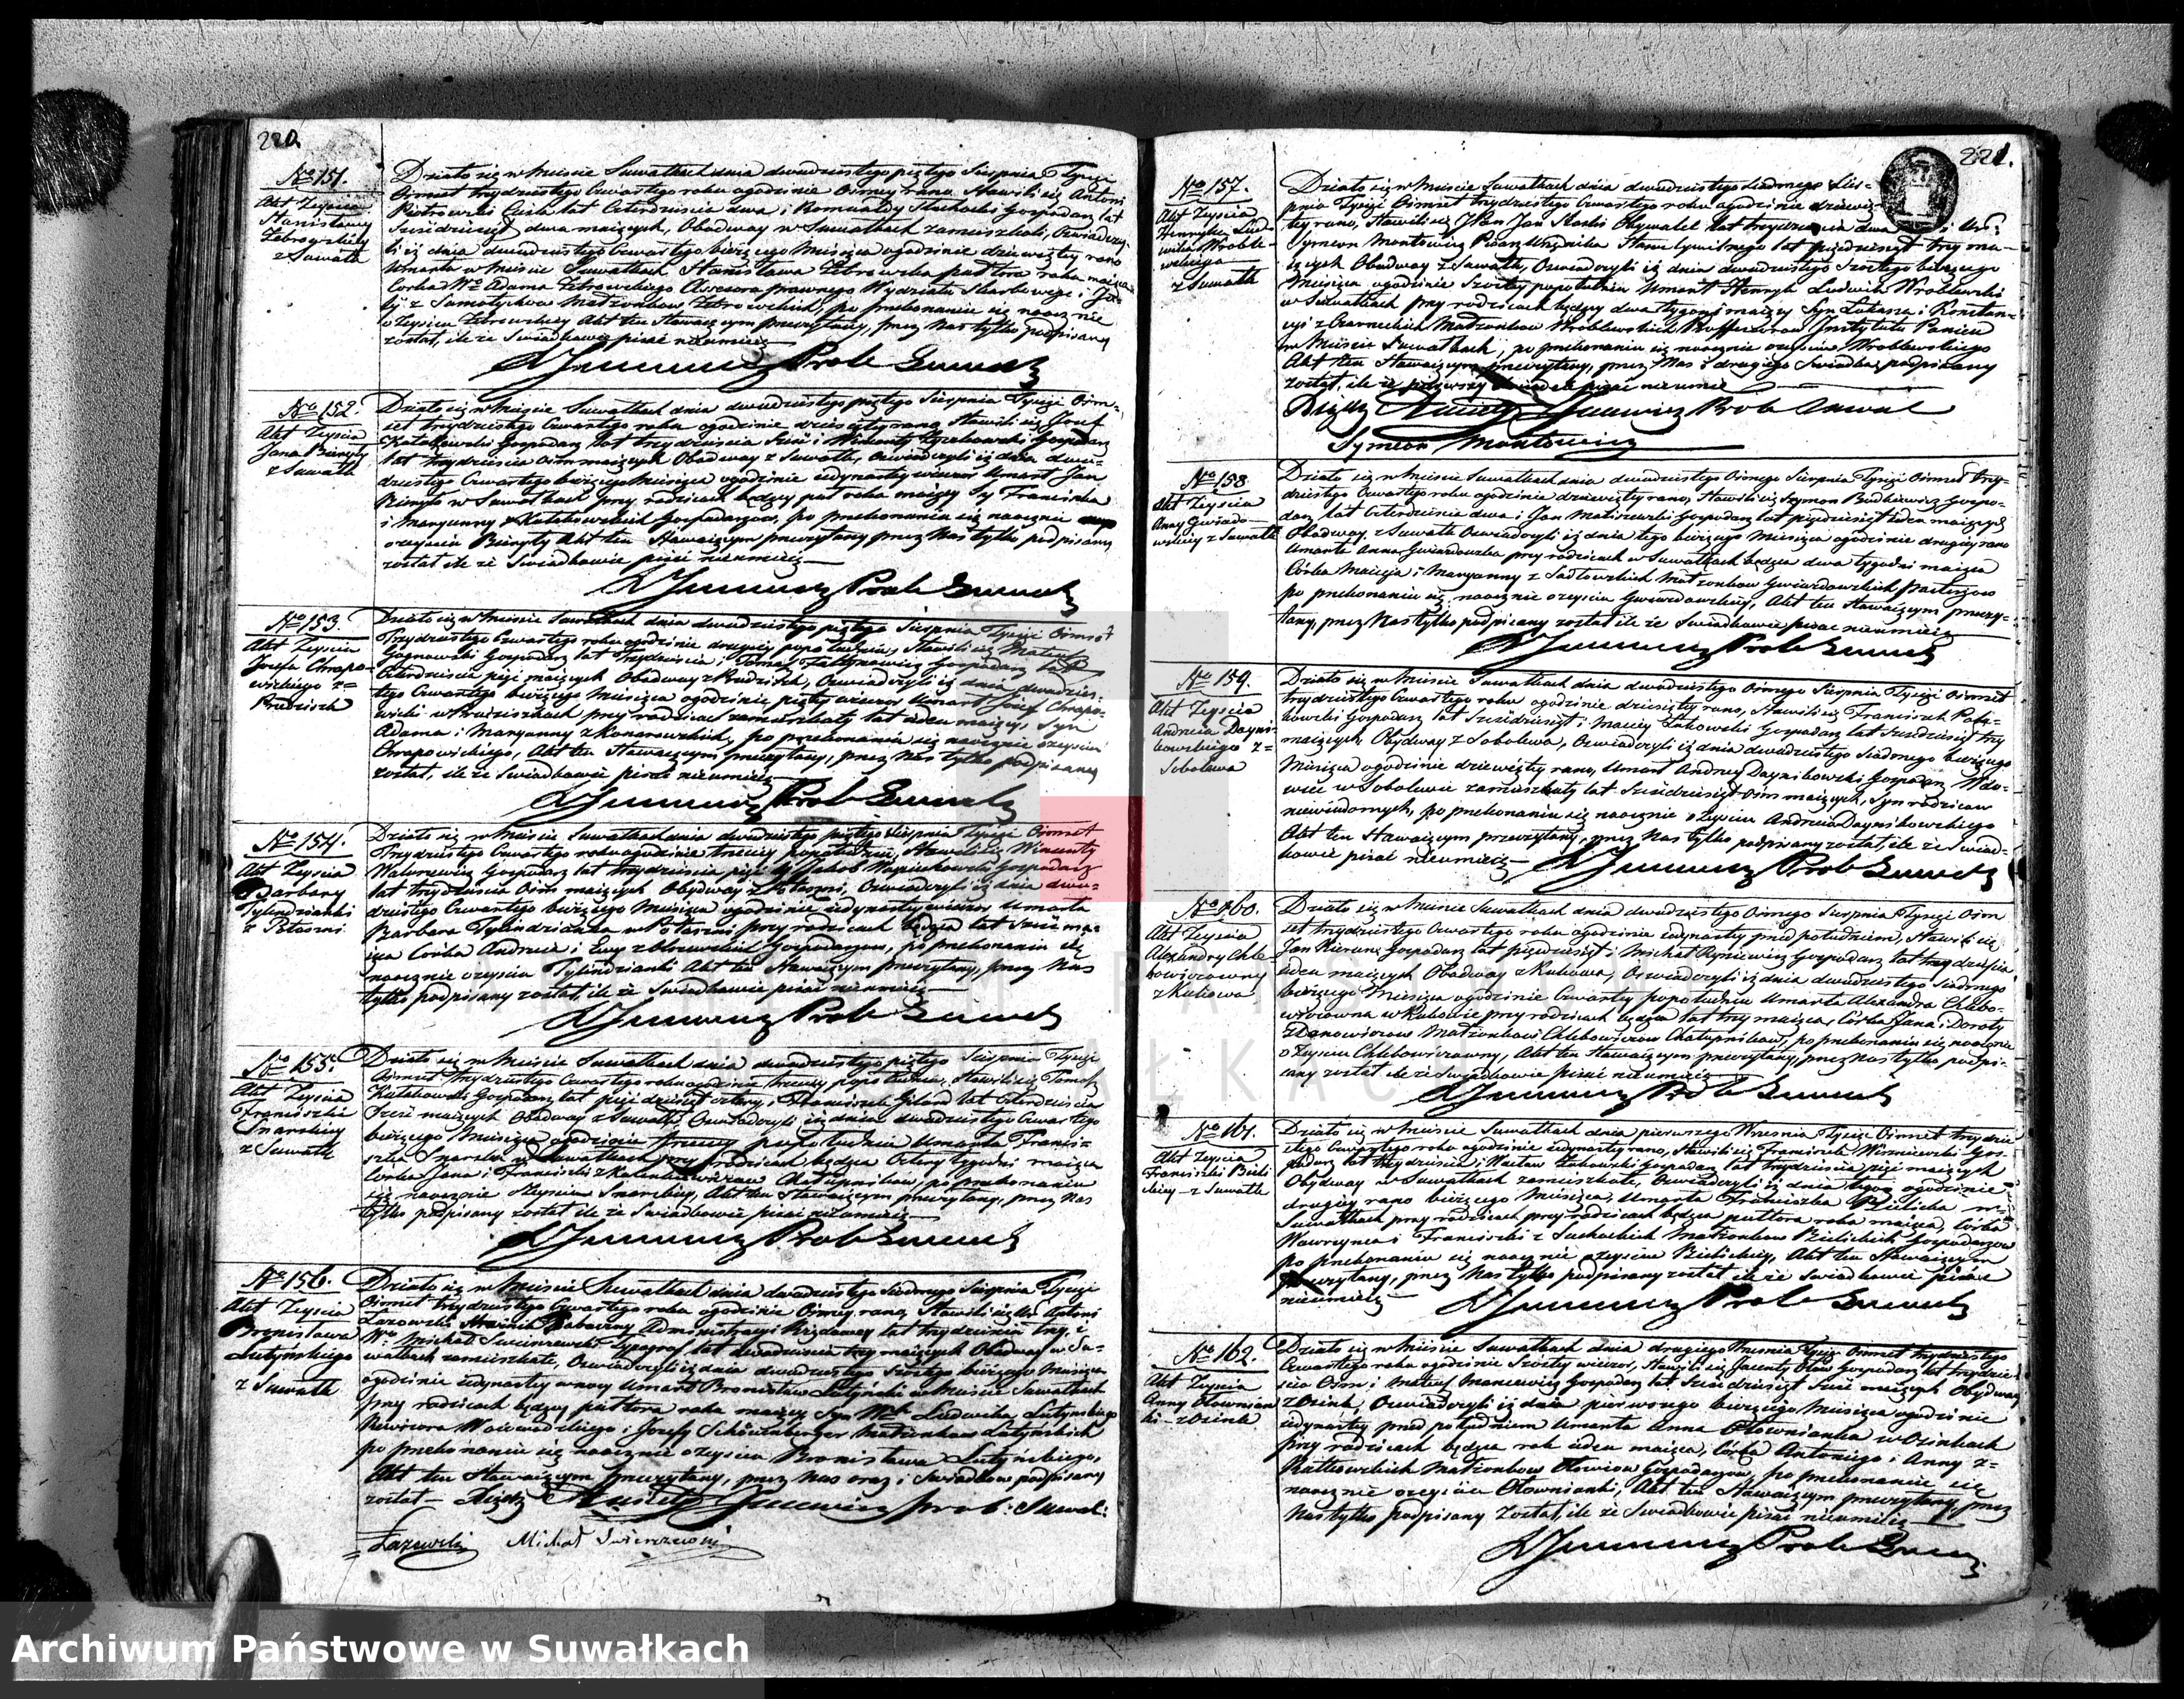 220.
No 151.
Akt Zeyscia
Stanisławy
Żebrowskiey
z Suwałk
Działo się w Mieście Suwałkach dnia dwudziestego piątego Sierpnia Tysiąc
Ośmset trzydziestego Czwartego roku o godzinie Osmey rano. Stawili się Antoni
Piotrowski Cieśla lat Czterdzieścia dwa i Romuald Gospodarz lat
dwa maiących, Obadway w Suwałkach zamieszkali, Oswiadczy-
li iż dnia dwudziestego Czwartego bieżącego Miesiąca o godzinie dziewiątey rano
Umarła w Mieście Suwałkach Stanisława Żebrowska pułtora roku maiąca
Corka Wo Adama Żebrowskiego Assesora prawnego Wydziału Skarbowego i
z Małżonków Żebrowskich, po przekonaniu się naocznie
o Zeysciu Żebrowskiey Akt ten Stawaiącym przeczytany, przez Nas tylko podpisany
został, ile że Swiadkowie pisać nieumieią
Prob Suwalk
No 152.
Akt Zeyscia
Jana
z Suwałk
Działo się w Mieście Suwałkach dnia dwudziestego piątego Sierpnia Tysiąc Ośm-
set trzydziestego Czwartego roku o godzinie dziesiątey rano, Stawili się Józef
Gospodarz lat trzydzieścia Sześć i Wincenty Gospodarz
lat trzydzieścia Ośm maiących Obadway z Suwałk, Oswiadczyli iż dnia dwu-
dziestego Czwartego bieżącego Miesiąca o godzinie iedynastey wieczor Umarł Jan
w Suwałkach przy rodzicach będący puł roku maiący Sy Franciszka
i Maryanny z Gospodarzow, po przekonaniu się naocznie
o zeyściu Akt ten Stawaiącym przeczytany, przez Nas tylko podpisany
został ile że Swiadkowie pisać nieumieią
Prob Suwalk
No 153.
Akt Zeyscia
Jozefa Chrapo-
wickiego z
Prudziszk
Działo się w Mieście Suwałkach dnia dwudziestego piątego Sierpnia Tysiąc Ośmset
Trzydziestego Czwartego roku o godzinie drugiey po południu, Stawili się Mateusz
Gospodarz lat Trzydzieścia i Tomasz Gospodarz lat
Czterdzieścia pięć maiących Obadway z Prudziszk, Oswiadczyli iż dnia dwudzies-
tego Czwartego bieżącego Miesiąca o godzinie piątey wieczor Umarł Józef Chrapo-
wicki w Prudziszkach przy rodzicach zamieszkały lat ieden maiący, Syn
Adama i Maryanny z Konarzewskich, po przekonaniu się naocznie o zeysciu
Chrapowickiego, Akt ten Stawaiącym przeczytany, przez Nas tylko podpisany
został, ile że Swiadkowie pisać nieumieią
Prob Suwalk
No 154.
Akt Zeyscia
Barbary
Tylindzianki
z Potaszni
Działo się w Mieście Suwałkach dnia dwudziestego piątego Sierpnia Tysiąc Ośmset
Trzydziestego Czwartego roku o godzinie trzeciey popołudniu, Stawili się Wincenty
Gospodarz lat trzydzieścia pięć i Jakob Gospodarz
lat trzydzieścia Ośm maiących Obydway z Potaszni, Oswiadczyli iż dnia dwu-
dziestego Czwartego bieżącego Miesiąca o godzinie iedynastey wieczor Umarła
Barbara Tylindzianka w Potaszni przy rodzicach będąca lat Sześć ma-
iąca Corka Andrzeia i Ewy z Gospodarzow, po przekonaniu się
naocznie o zeysciu Tylindzianki Akt ten Stawaiącym przeczytany, przez Nas
tylko podpisany został, ile że Swiadkowie pisać nieumieią
Prob Suwalk
No 155.
Akt Zeyscia
Franciszki
Snarskiey
z Suwałk
Działo się w Mieście Suwałkach dnia dwudziestego piątego Sierpnia Tysiąc
Ośmset trzydziestego Czwartego roku o godzinie trzeciey popołudniu, Stawili się Tomasz
Gospodarz lat pięćdziesiąt cztery, i Franciszek lat Czterdzieścia
Sześć maiących Obadway z Suwałk, Oswiadczyli iż dnia dwudziestego Czwartego
bieżącego Miesiąca o godzinie trzeciey po południu Umarła Franci-
szka Snarska w Suwałkach przy rodzicach będąca Cztery tygodni maiąca
Corka Jana i Franciszki z Chałupnikow, po przekonaniu
się naocznie o Zeysciu Snarskiey, Akt ten Stawaiącym przeczytany, przez Nas
tylko podpisany został ile że Swiadkowie pisać nieumieią
Prob Suwalk
No 156.
Akt Zeyscia
Bronisława
Lutyńskiego
z Suwałk
Działo się w Mieście Suwałkach dnia dwudziestego Siódmego Sierpnia Tysiąc
Ośmset trzydziestego Czwartego roku o godzinie Osmey rano, Stawili się Antoni
Łazowski Strażnik Administracyi lat trzydzieścia trzy, i
Wo Michał Swierszewski Typograf lat dwadzieścia trzy maiących Obadway w Su-
wałkach zamieszkałe, Oswiadczyli iż dnia dwudziestego Szóstego bieżącego Miesiąca
o godzinie iedynastey w nocy Umarł Bronisław Lutyński w Mieście Suwałkach
przy rodzicach będący pułtora roku maiący Syn Ludwika Lutyńskiego
Rewizora Woiewodzkiego i Józefy Schönberger Małżonkow Lutyńskich
po przekonaniu się naocznie o zeysciu Bronisława Lutyńskiego,
Akt ten Stawaiącym przeczytany, przez Nas oraz i Swiadkow podpisany
został — Xiądz prob: Suwal:
Łazowski Michał Swierszewski
221.
No 157.
Akt Zeyscia
Henryka Lud-
wika Wroble-
wskiego
z Suwałk
Działo się w Mieście Suwałkach dnia dwudziestego Siodmego Sier-
pnia Tysiąc Ośmset trzydziestego Czwartego roku o godzinie dziewią-
tey rano, Stawili się JPan Jan Obywatel lat trzydzieścia dwa i
Symeon Montowicz Pisarz Urzędnika Stanu Cywilnego lat pięćdziesiąt trzy ma-
iących Obadway z Suwałk, Oswiadczyli iż dnia dwudziestego Szóstego bieżącego
Miesiąca o godzinie Szóstey popołudniu Umarł Henryk Ludwik Wroblewski
w Suwałkach przy rodzicach będący dwa tygodni maiący Syn Łukasza i Konstan-
cyi z Czarneckich Małżonkow Wroblewskich Proffessorow Instytutu Panien
w Mieście Suwałkach, po przekonaniu się naocznie o zeysciu Wroblewskiego
Akt ten Stawaiącym przeczytany, przez Nas i drugiego Swiadka podpisany
został, ile że pierwszy Swiadek pisać nieumie
Xiądz Prob Suwal
Symeon Montowicz
No 158
Akt Zeyscia
Anny Gwiazdo-
wskiey z Suwałk
Działo się w Mieście Suwałkach dnia dwudziestego Osmego Sierpnia Tysiąc Ośmset trzy-
dziestego Czwartego roku o godzinie dziewiątey rano, Stawili się Szymon Budkiewicz Gospo-
darz lat Czterdzieście dwa i Jan Matiszewski Gospodarz lat pięćdziesiąt ieden maiących
Obadway z Suwałk Oswiadczyli iż dnia tego bieżącego Miesiąca o godzinie drugiey rano
Umarła Anna Gwiazdowska przy rodzicach w Suwałkach będąca dwa tygodni maiąca
Córka Macieja i Maryanny z Sadłowskich Małżonkow Gwiazdowskich
po przekonaniu się naocznie o zeysciu Gwiazdowskiey, Akt ten Stawaiącym przeczy-
tany, przez Nas tylko podpisany został ile że Swiadkowie pisać nieumieią
Prob Suwalk
No 159.
Akt Zeyscia
Andrzeia Dayni-
kowskiego z
Sobolewa
Działo się w Mieście Suwałkach dnia dwudziestego Osmego Sierpnia Tysiąc Ośmset
trzydziestego Czwartego roku o godzinie dziesiątey rano, Stawili się Franciszek
Gospodarz lat Sześćdziesiąt i Maciey Żukowski Gospodarz lat Sześćdziesiąt trzy
maiących Obydway z Sobolewa, Oswiadczyli iż dnia dwudziestego Siodmego bieżącego
Miesiąca o godzinie dziewiątey rano, Umarł Andrzey Daynikowski Gospodarz Wdo-
wiec w Sobolewie zamieszkały lat Sześćdziesiąt Ośm maiących, Syn rodzicow
niewiadomych, po przekonaniu się naocznie o Zeysciu Andrzeia Daynikowskiego
Akt ten Stawaiącym przeczytany, przez Nas tylko podpisany został, ile że Swiad-
kowie pisać nieumieią
Prob Suwalk
No 160.
Akt Zeyscia
Alexandry Chle-
bowiczowny
z Kukowa
Działo się w Mieście Suwałkach dnia dwudziestego Osmego Sierpnia Tysiąc Ośm
set trzydziestego Czwartego roku o godzinie iedynastey przed południem, Stawili się
Jan Gospodarz lat pięćdziesiąt i Michał Gospodarz lat trzydzieścia
ieden maiących Obadway z Kukowa, Oswiadczyli iż dnia dwudziestego Siodmego
bieżącego Miesiąca o godzinie Czwartey popołudniu Umarła Alexandra Chlebo-
wiczowna w Kukowie przy rodzicach będąca lat trzy maiąca, Córka Jana i Doroty
Zdanowiczow Małżonkow Chlebowiczow Chałupnikow, po przekonaniu się naocznie
o Zeysciu Chlebowiczowny, Akt ten Stawaiącym przeczytany, przez Nas tylko podpi-
sany został ile że Swiadkowie pisać nieumieią
Prob Suwalk
No 161.
Akt Zeyscia
Franciszki Bieli-
ckiey z Suwałk
Działo się w Mieście Suwałkach dnia pierwszego Września Tysiąc Ośmset trzydzie
stego Czwartego roku o godzinie iedynastey rano, Stawili się Franciszek Wiszniewski Gos-
podarz lat trzydzieścia i Wacław Żukowski Gospodarz lat trzydzieścia pięć maiących
Obydway w Suwałkach zamieszkałe, Oswiadczyli iż dnia tegoż o godzinie
drugiey rano bieżącego Miesiąca, Umarła Franciszka Bielicka w
Suwałkach przy rodzicach przy rodzicach będąca pułtora roku maiąca, Córka
Wawrzynca i Franciszki z Suchockich Małżonkow Bielickich Gospodarzow
po przekonaniu się naocznie o zeysciu Bielickiey, Akt ten Stawaiącym
przeczytany, przez Nas tylko podpisany został ile że Swiadkowie pisać
nieumieią
Prob Suwalk
No 162.
Akt Zeyscia
Anny Ołownian
ki z Osinek
Działo się w Mieście Suwałkach dnia drugiego Września Tysiąc Ośmset trzydziestego
Czwartego roku o godzinie Szóstey wieczor, Stawili się Jacenty Ołow Gospodarz lat trzydzie-
ścia Ośm i Mateusz Gospodarz lat Sześćdziesiąt Sześć maiących Obydway
z Osinek, Oswiadczyli iż dnia pierwszego bieżącego Miesiąca o godzinie
iedynastey przed południem Umarła Anna Ołownianka w Osinkach
przy rodzicach będąca rok ieden maiąca, Córka Antoniego i Anny z
Rutkowskich Małżonkow Ołowiow Gospodarzow, po przekonaniu się
naocznie o zeysciu Ołownianki, Akt ten Stawaiącym przeczytany, przez
Nas tylko podpisany został, ile że Swiadkowie pisać nieumieią
Prob Suwal
Archiwum Państwowe w Suwałkach